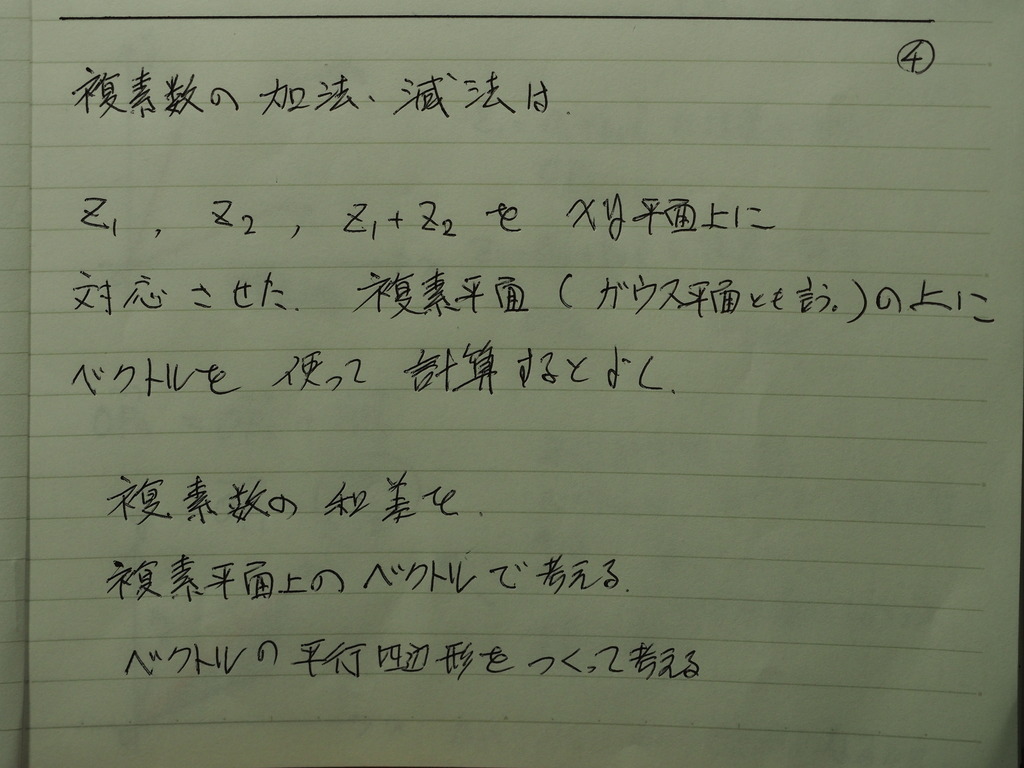 ④
複素数の加法、減法は
Z₁, Z₂, Z₁+Z₂ を xy平面上に
対応させた. 複素平面(ガウス平面とも言う。)の上に
ベクトルを使って計算するとよく.
複素数の和差を.
複素平面上のベクトルで考える.
ベクトルの平行四辺形をつくって考える